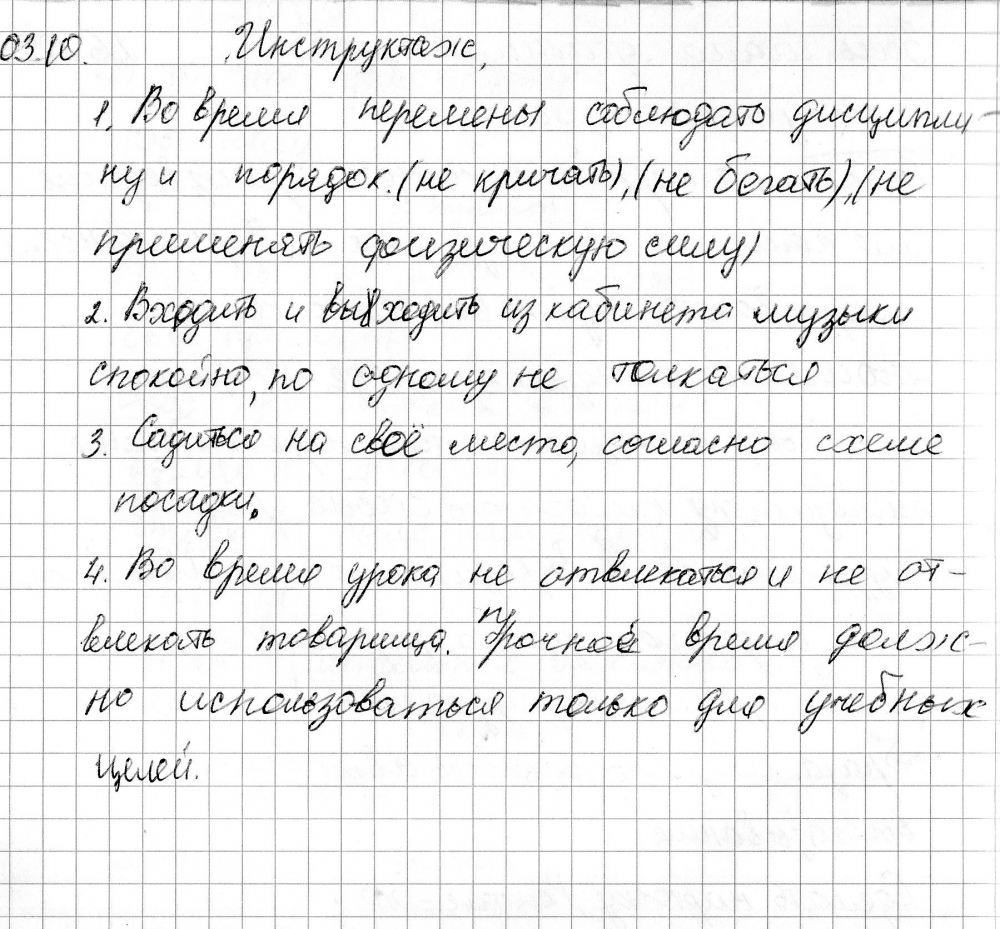 03.10. Инструктаж.
1. Во время перемены соблюдать дисципли-
ну и порядок. (не кричать), (не бегать), (не
применять физическую силу)
2. Входить и выходить из кабинета музыки
спокойно, по одному не толкаться
3. Садиться на своё место, согласно схеме
посадки.
4. Во время урока не отвлекаться и не от-
влекать товарища. Урочное время долж-
но использоваться только для учебных
целей.